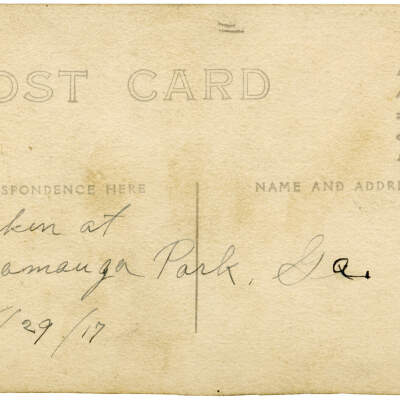 OST CARD
SPONDENCE HERE
NAME AND ADDRE
ken at
amauga Park, Ga.
/29/17